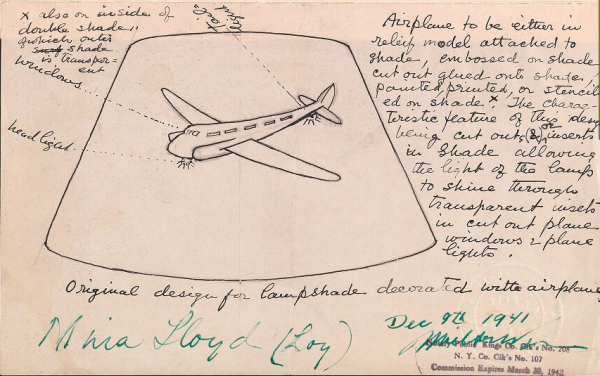 x also on inside of
double shade"
of which outer
shade
is transpar-
ent
windows
headlight
tail
light
Airplane to be either in
relief model attached to
shade, embossed on shade
cut out glued onto shade,
painted, printed, or stencil
ed on shade x The charac-
teristic feature of this design
being cut outs (&) or inserts
in shade allowing
the light of the lamp
to shine through
transparent insets
in cut out plane
windows & plane
lights.
Original design for lampshade decorated with airplane
Mina Lloyd (Loy)
Dec 9th 1941
Notary Public Kings Co. Clk's No. 208
N. Y. Co. Clk's No. 107
Commission Expires March 30, 1942